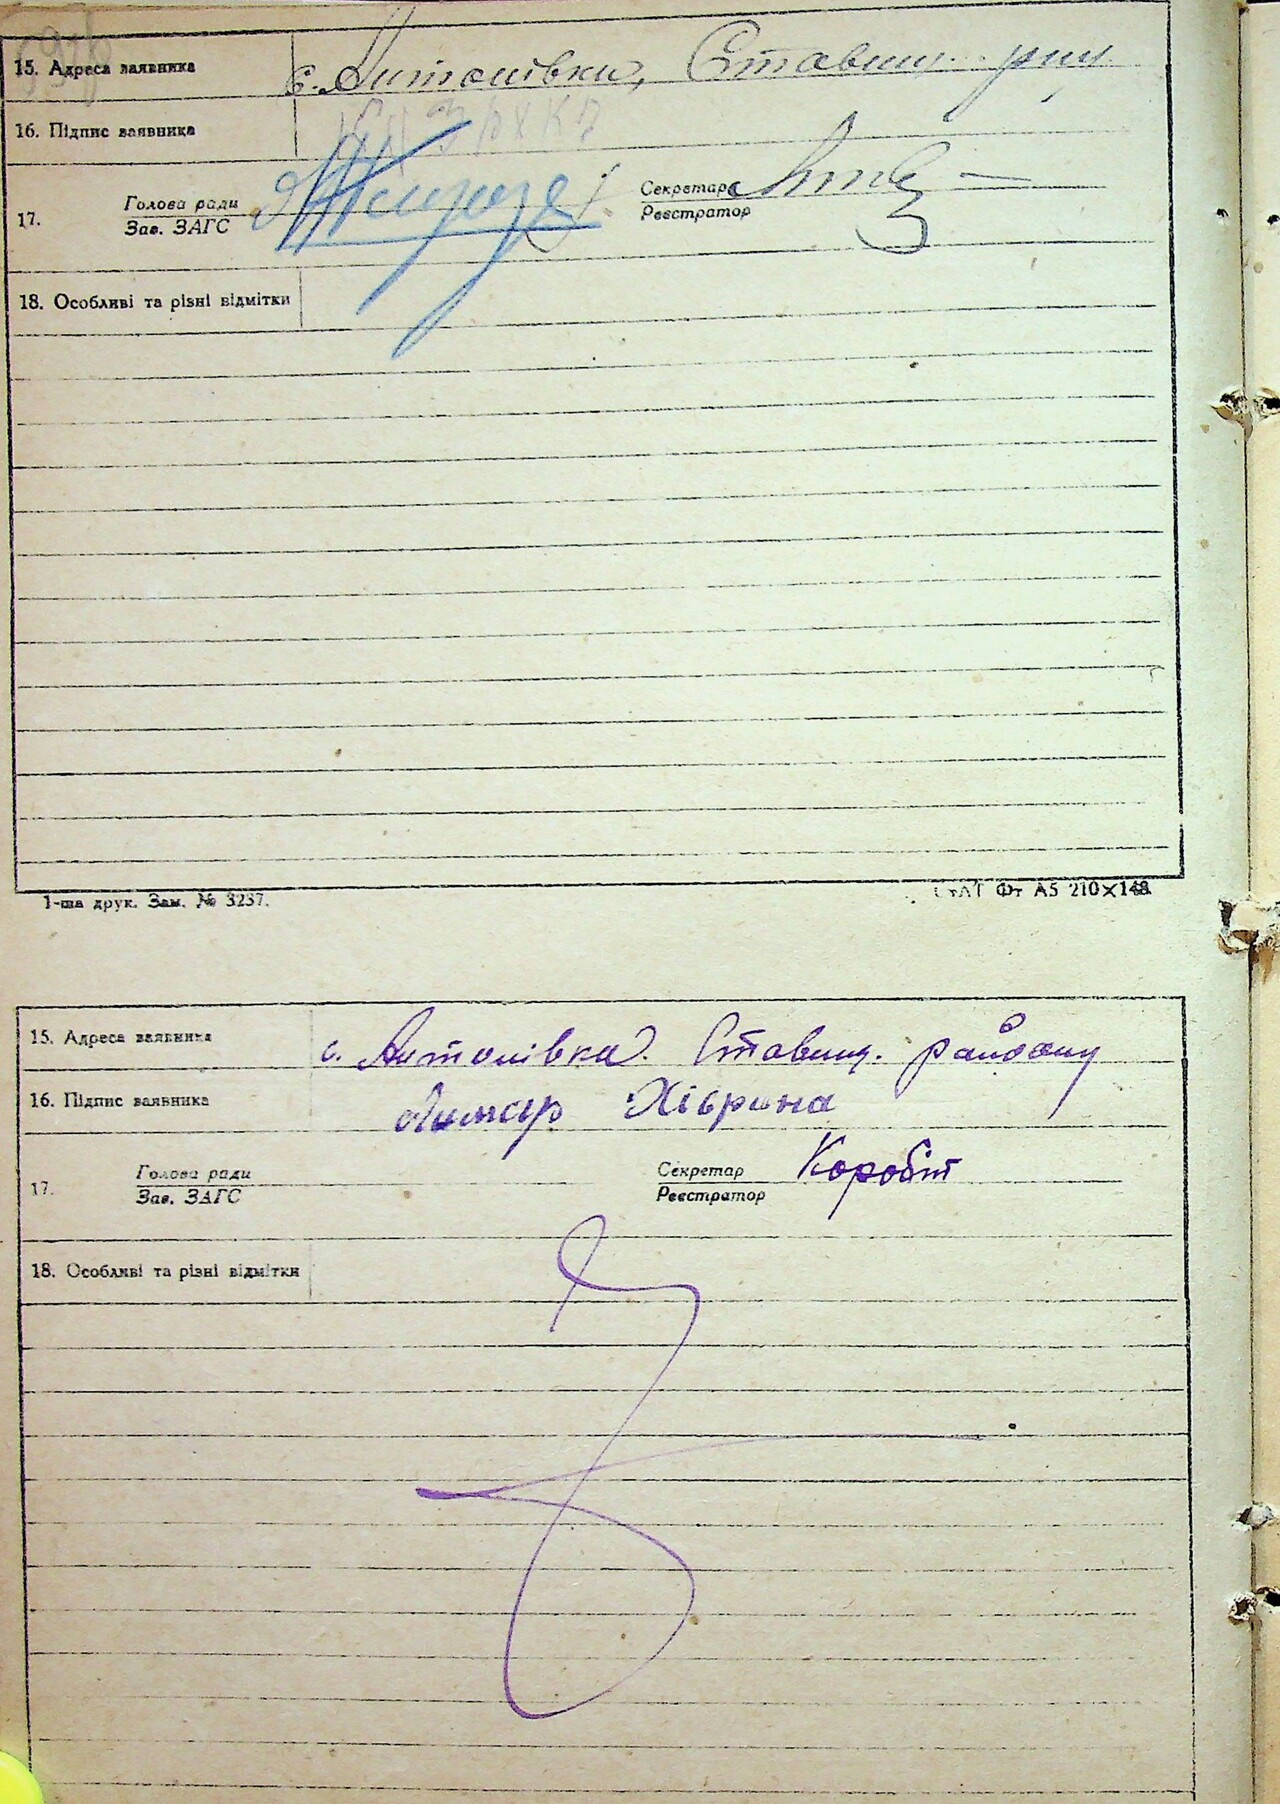 15. Адреса заявника с. Антонівка, Ставищ. р-ну
16. Підпис заявника
17. Голова ради Секретар
Зав. ЗАГС Реєстратор
18. Особливі та різні відмітки
1-ша друк. Зам. № 3237. СтАТ Фт А5 210×148
15. Адреса заявника с. Антонівка. Ставищ. району
16. Підпис заявника Хіврина
17. Голова ради Секретар Коробіт
Зав. ЗАГС Реєстратор
18. Особливі та різні відмітки